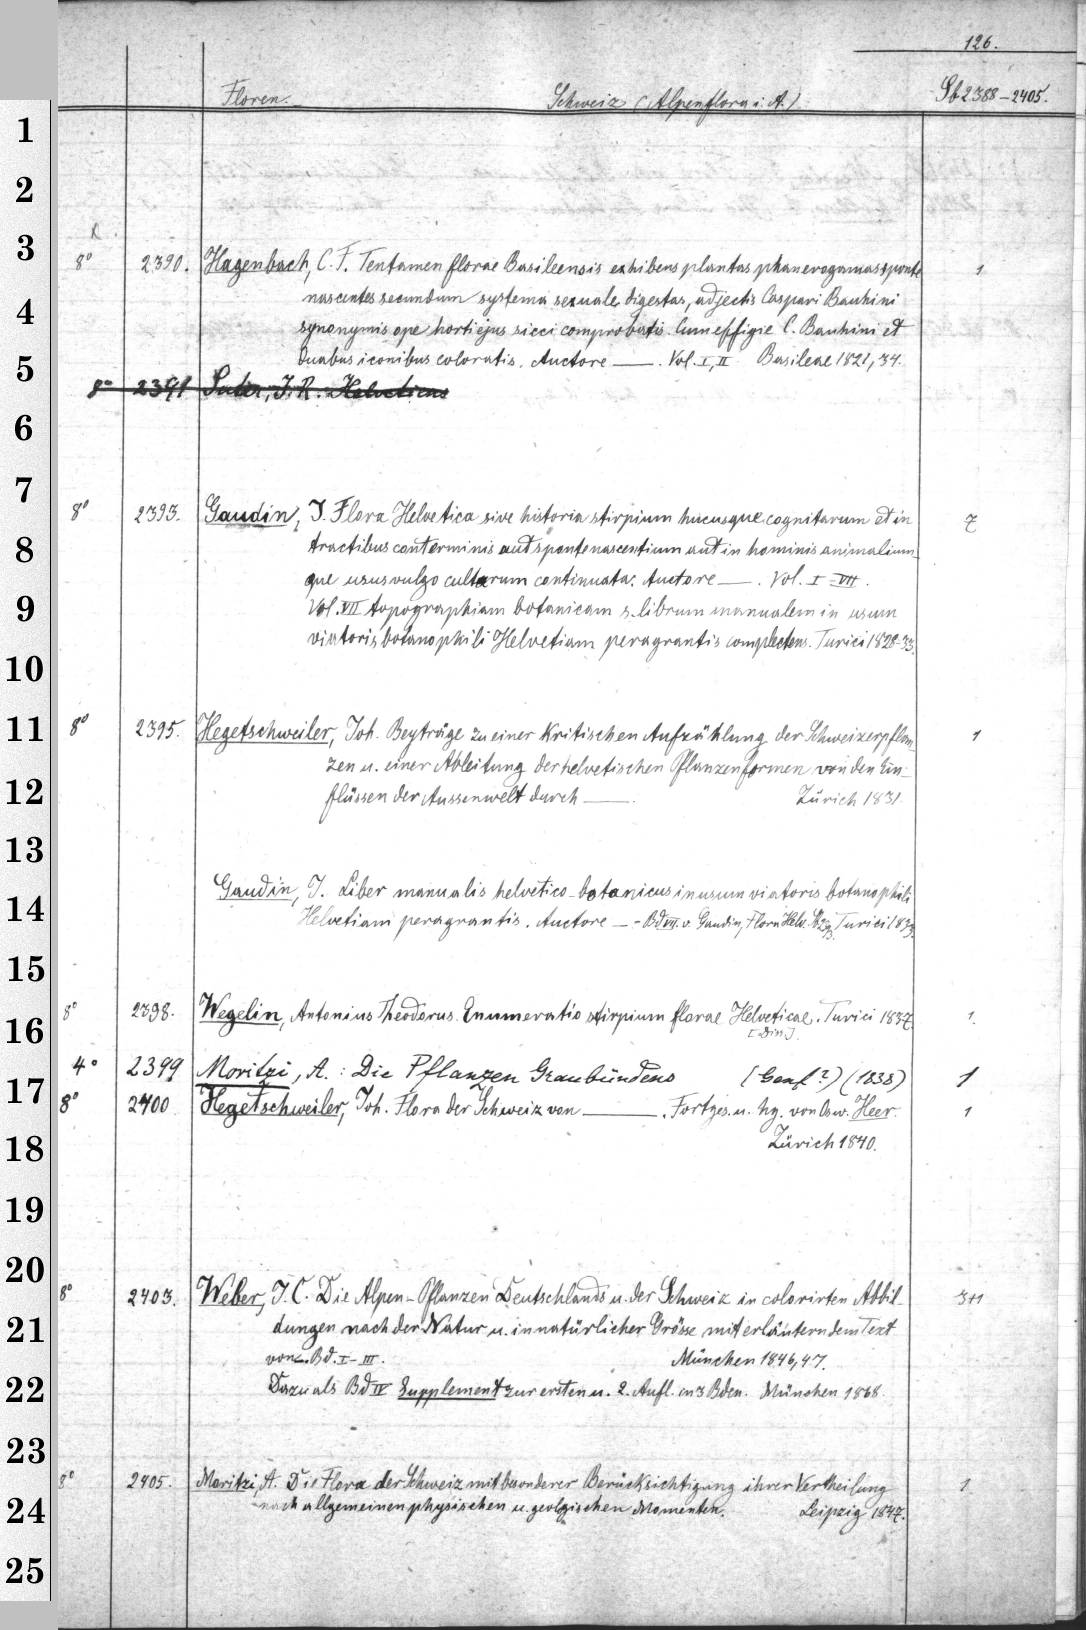 126.
Floren. Schweiz (Alpenflora i. A.) Sb 2388-2405.
1
2
3
8° 2390. Hagenbach, C. F. Tentamen florae Basileensis exhibens plantas phanerogamas sponte 1
nascentes secundum systema sexuale digestas, adjectis Caspari Bauhini
4
synonymis ope horti ejus sicci comprobatis. Cum effigie C. Bauhini et
duabus iconibus coloratis. Auctore —. Vol. I, II Basileae 1821, 34.
5
8° 2391 Suter, J. R. Helveticus
6
7
8° 2393. Gaudin, J. Flora Helvetica sive historia stirpium hucusque cognitarum et in 7
8
tractibus conterminis aut sponte nascentium aut in hominis animalium-
que usus vulgo cultarum continuata. Auctore —. Vol. I-VII.
9
Vol. VII topographiam botanicam s. librum manualem in usum
viatoris botanophili Helvetiam peragrantis complectens. Turici 1828-33.
10
11
8° 2395. Hegetschweiler, Joh. Beyträge zu einer kritischen Aufzählung der Schweizerpflan- 1
zen u. einer Ableitung der helvetischen Pflanzenformen von den Ein-
12
flüssen der Aussenwelt durch —. Zürich 1831.
13
14
Gaudin, J. Liber manualis helvetico-botanicus in usum viatoris botanophili
Helvetiam peragrantis. Auctore — - Bd VII. v. Gaudin, Flora Helv. Turici 1833.
15
8° 2398. Wegelin, Antonius Theodorus. Enumeratio stirpium florae Helveticae. Turici 1837. 1.
16
[Din.]
4° 2399 Moritzi, A.: Die Pflanzen Graubündens (Genf?) (1838) 1
17
8° 2400 Hegetschweiler, Joh. Flora der Schweiz von —. Fortges. u. hg. von Osw. Heer. 1
18
Zürich 1840.
19
20
8° 2403. Weber, J. C. Die Alpen-Pflanzen Deutschlands u. der Schweiz in colorirten Abbil- 3+1
21
dungen nach der Natur u. in natürlicher Grösse mit erläuterndem Text
von —. Bd. I-III. München 1846, 47.
22
Dazu als Bd IV Supplement zur ersten u. 2. Aufl. in 3 Bden. München 1868.
23
8° 2405. Moritzi, A. Die Flora der Schweiz mit besonderer Berücksichtigung ihrer Vertheilung 1
24
nach allgemeinen physischen u. geologischen Momenten. Leipzig 1847.
25